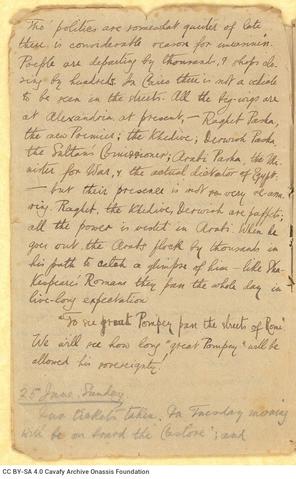 The politics are somewhat quieter of late
there is considerable reason for uneasiness.
People are departing by thousands, & shops clo
sing by hundreds. In Cairo there is not a
to be seen in the streets. All the big-wigs are
at Alexandria at present, — Raghet Pasha,
the new Premier; the Khedive; Derwish Pasha,
the Sultan's Comissioner; Arabi Pasha, the Mi-
nister for War, & the actual dictator of Egypt.
— but their presence is not very re-assu
ring. Raghet, the Khedive, Derwish are
all the power is vested in Arabi. When he
goes out the Arabs flock by thousands in
his path to catch a glimpse of him — like Sha-
kespeare's Romans they pass the whole day in
live-long expectation
"To see great Pompey pass the streets of Rome"
We will see how long "great Pompey" will be
allowed his sovereignty!
25 June. Sunday
Our tickets taken. On Tuesday morning
will be on board the "Castore"; and
CC BY-SA 4.0 Cavafy Archive Onassis Foundation